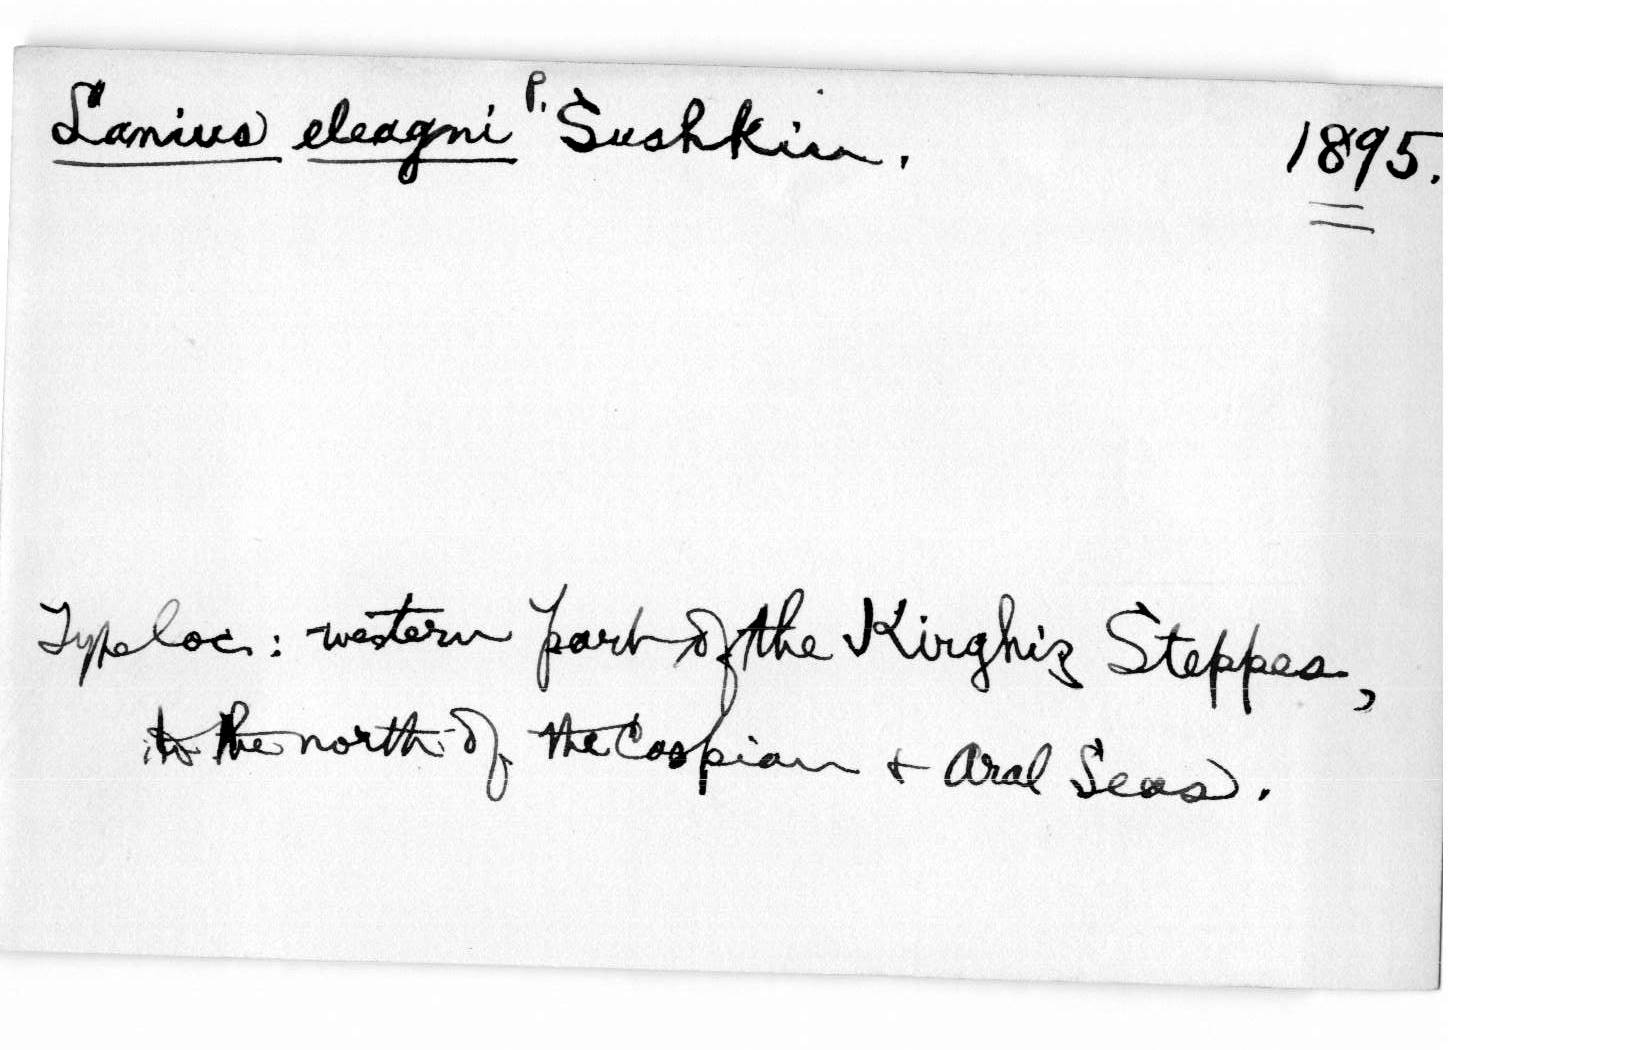 Lanius eleagni P. Sushkin. 1895.
Type loc.: western part of the Kirghiz Steppes,
to the north of the Caspian + Aral Seas.